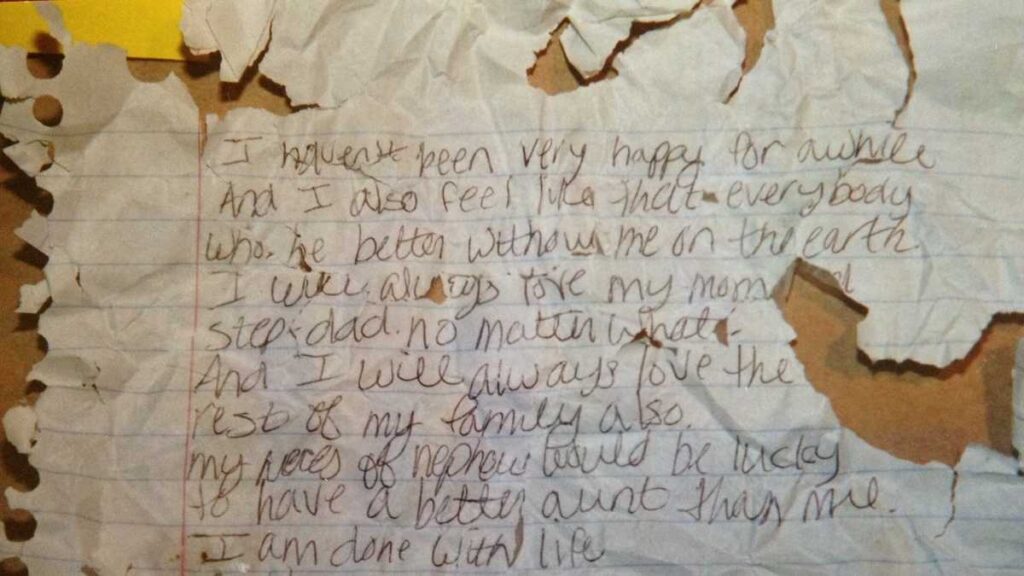 I haven't been very happy for awhile
And I also feel like that everybody
who. be better without me on the earth.
I will always love my mom d
step-dad no matter what.
And I will always love the
rest of my family also.
my nieces of nephow would be lucky
to have a better aunt than me.
I am done with life